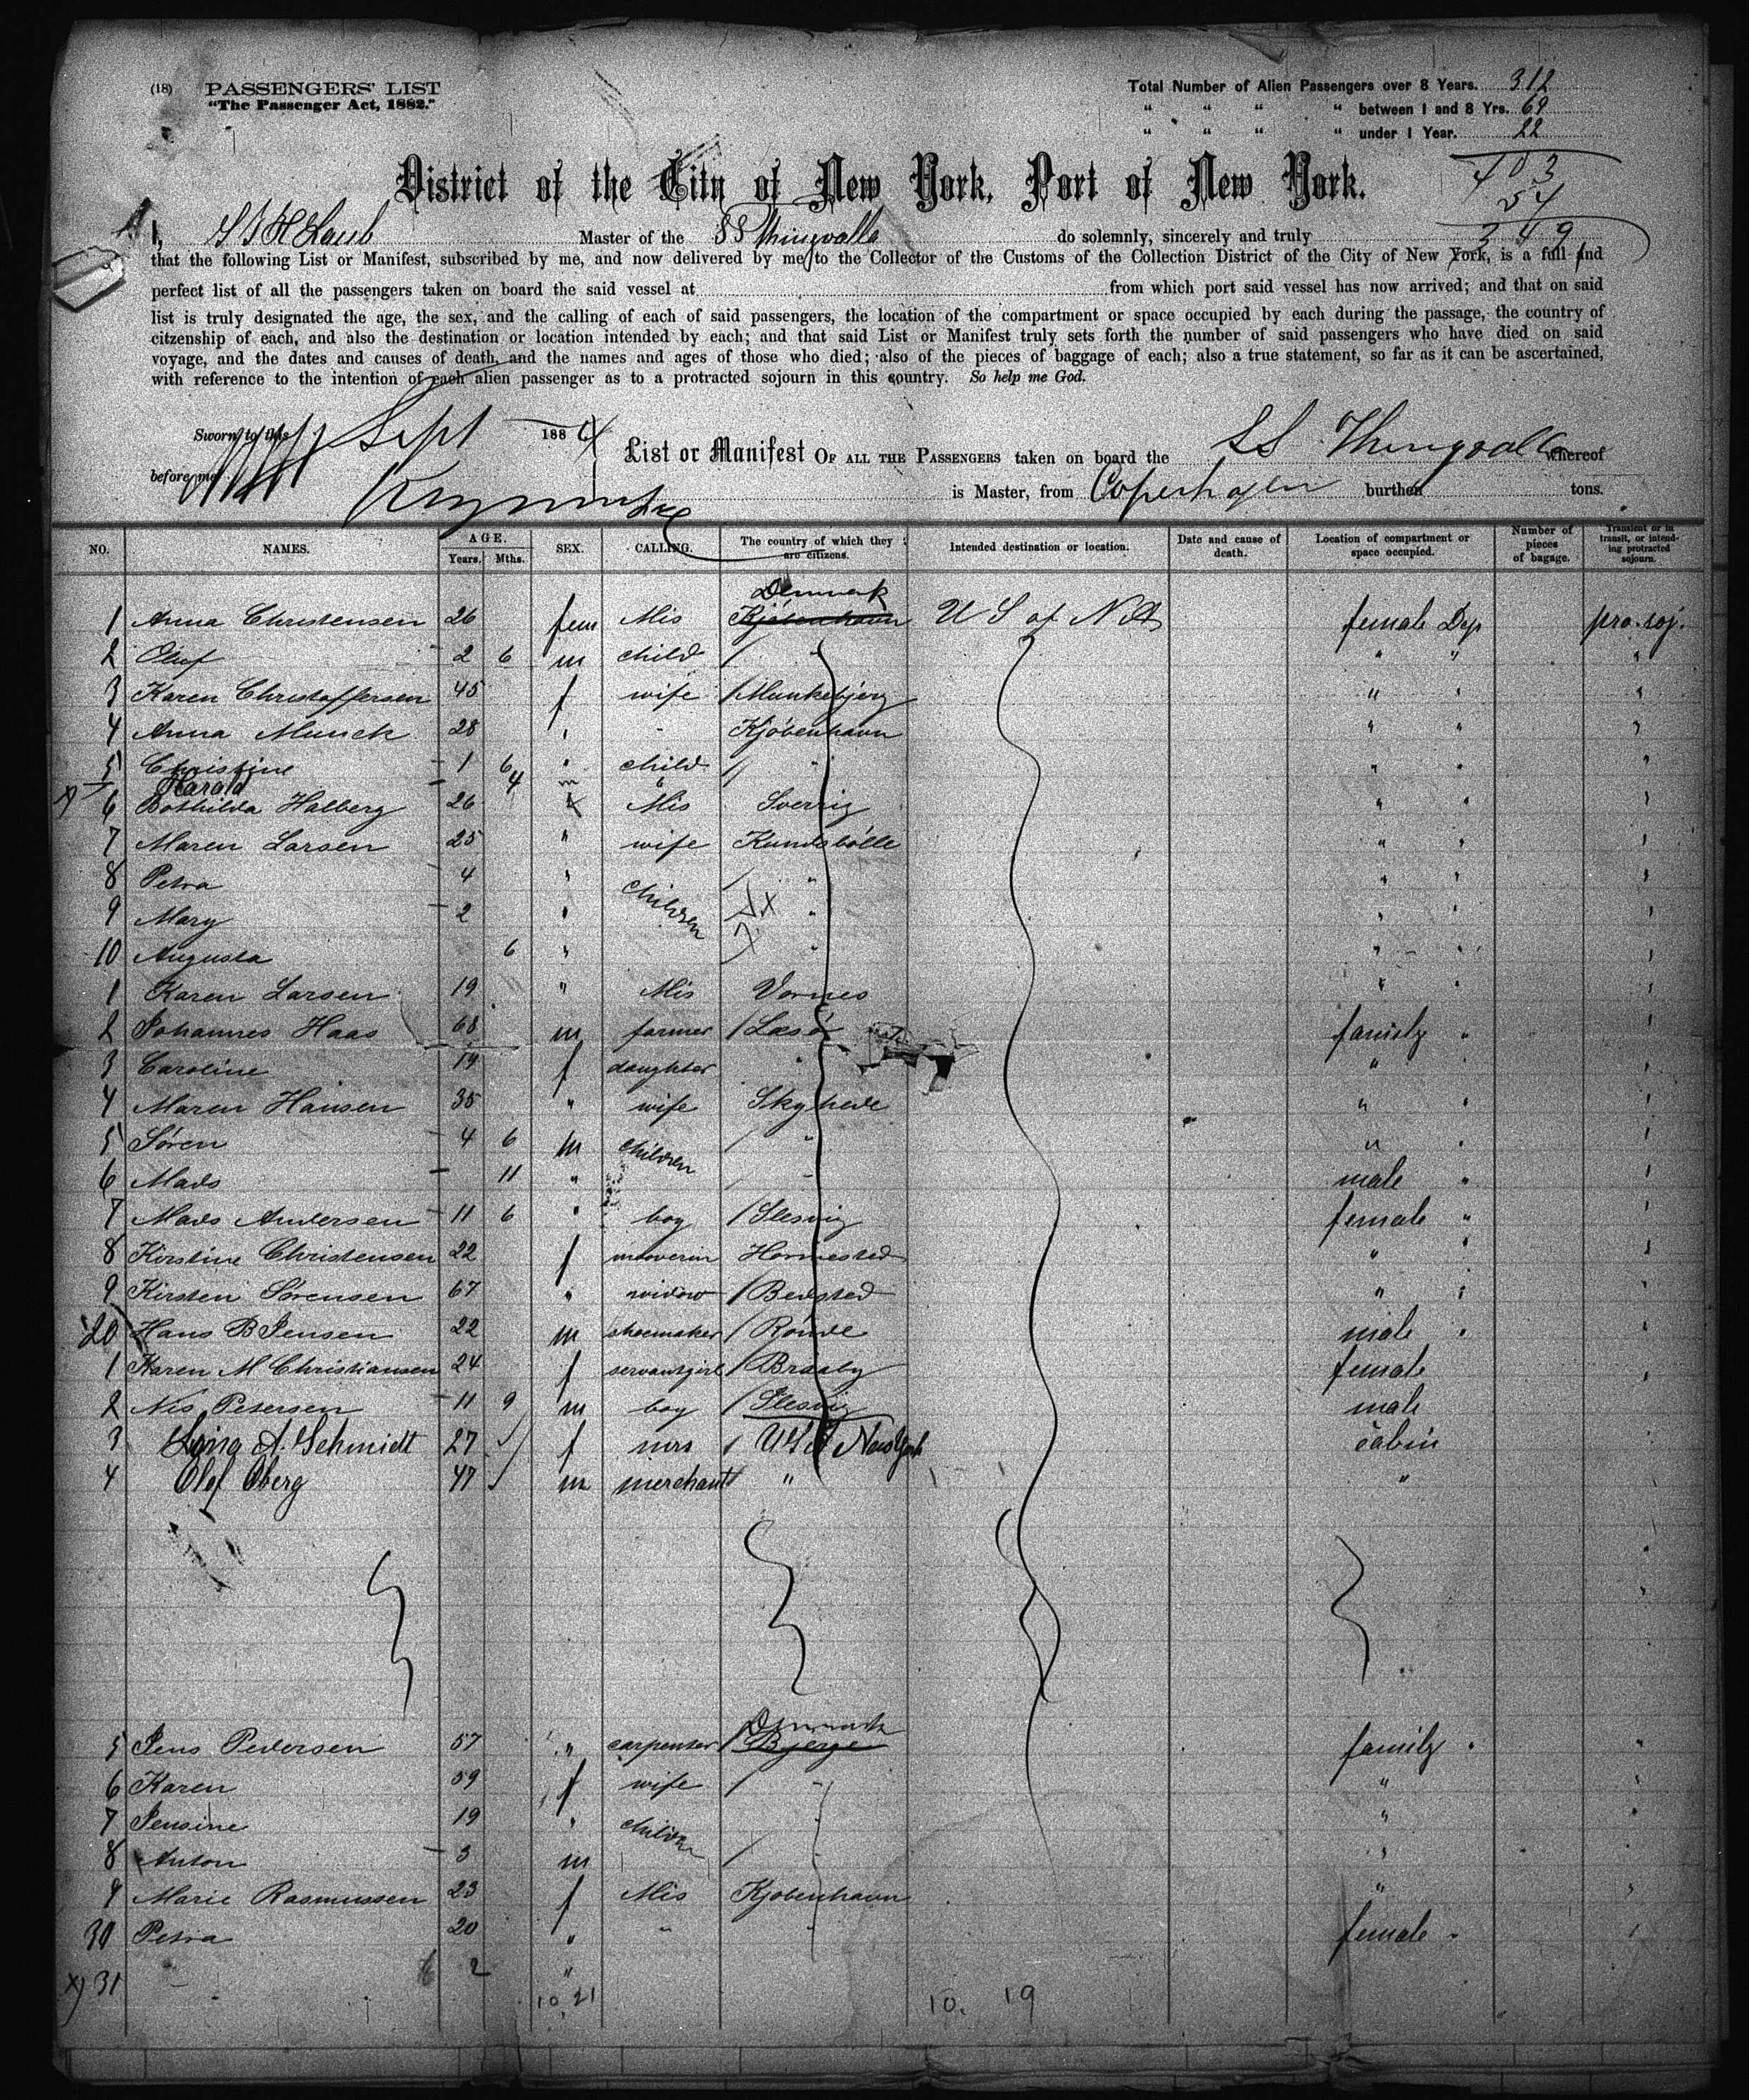 (18) PASSENGERS' LIST
"The Passenger Act, 1882."
Total Number of Alien Passengers over 8 Years. 312
" " " " between 1 and 8 Yrs. 69
" " " " under 1 Year. 22
403
54
349
District of the City of New York, Port of New York.
I, S T H Laub Master of the SS Thingvalla do solemnly, sincerely and truly
that the following List or Manifest, subscribed by me, and now delivered by me to the Collector of the Customs of the Collection District of the City of New York, is a full and
perfect list of all the passengers taken on board the said vessel at from which port said vessel has now arrived; and that on said
list is truly designated the age, the sex, and the calling of each of said passengers, the location of the compartment or space occupied by each during the passage, the country of
citzenship of each, and also the destination or location intended by each; and that said List or Manifest truly sets forth the number of said passengers who have died on said
voyage, and the dates and causes of death, and the names and ages of those who died; also of the pieces of baggage of each; also a true statement, so far as it can be ascertained,
with reference to the intention of each alien passenger as to a protracted sojourn in this country. So help me God.
Sworn to this Sept 1884
before me
List or Manifest OF ALL THE PASSENGERS taken on board the SS Thingvalla whereof
is Master, from Copenhagen burthen tons.
NO. NAMES. AGE. Years. Mths. SEX. CALLING. The country of which they are citizens. Intended destination or location. Date and cause of death. Location of compartment or space occupied. Number of pieces of bagage. Transient or in transit, or intending protracted sojourn.
Denmark
1 Anna Christensen 26 fem Mis Kjøbenhavn U S of N A female Dep pro. soj.
2 Oluf 2 6 m child " " " "
3 Karen Christoffersen 45 f wife Munkebjerg " " "
4 Anna Munck 28 " " Kjøbenhavn " " "
5 Christine 1 6 " child " " " "
Harald 4 m "
x) 6 Bothilda Halberg 26 f Mis Sverrig " " "
7 Maren Larsen 25 " wife Kundsbølle " " "
8 Petra 4 " children " " " "
9 Mary 2 " " " " "
10 Augusta 6 " " " " "
1 Karen Larsen 19 " Mis Vornes " " "
2 Johannes Haas 68 m farmer Læsø family " "
3 Caroline 19 f daughter " " "
4 Maren Hansen 35 " wife Skyhede " " "
5 Søren 4 6 m children " " " "
6 Mads 11 " " male " "
7 Mads Andersen 11 6 " boy Slesvig female " "
8 Kirstine Christensen 22 f Hornested " " "
9 Kirsten Sørensen 67 " widow Bedsted " " "
20 Hans B Jensen 22 m shoemaker Rønde male " "
1 Karen M Christiansen 24 f servantgirl Braaby female "
2 Nis Petersen 11 9 m boy Slesvig male
3 A. Schmidt 27 f mrs New York cabin
4 Olof Oberg 47 m merchant " "
Denmark
5 Jens Pedersen 57 " carpenter Bjerge family " "
6 Karen 59 f wife " " "
7 Jensine 19 " children " " "
8 Anton 3 m " " "
9 Marie Rasmussen 23 f Mis Kjøbenhavn " "
30 Petra 20 " " " female " "
x) 31 2 "
10. 21 10. 19